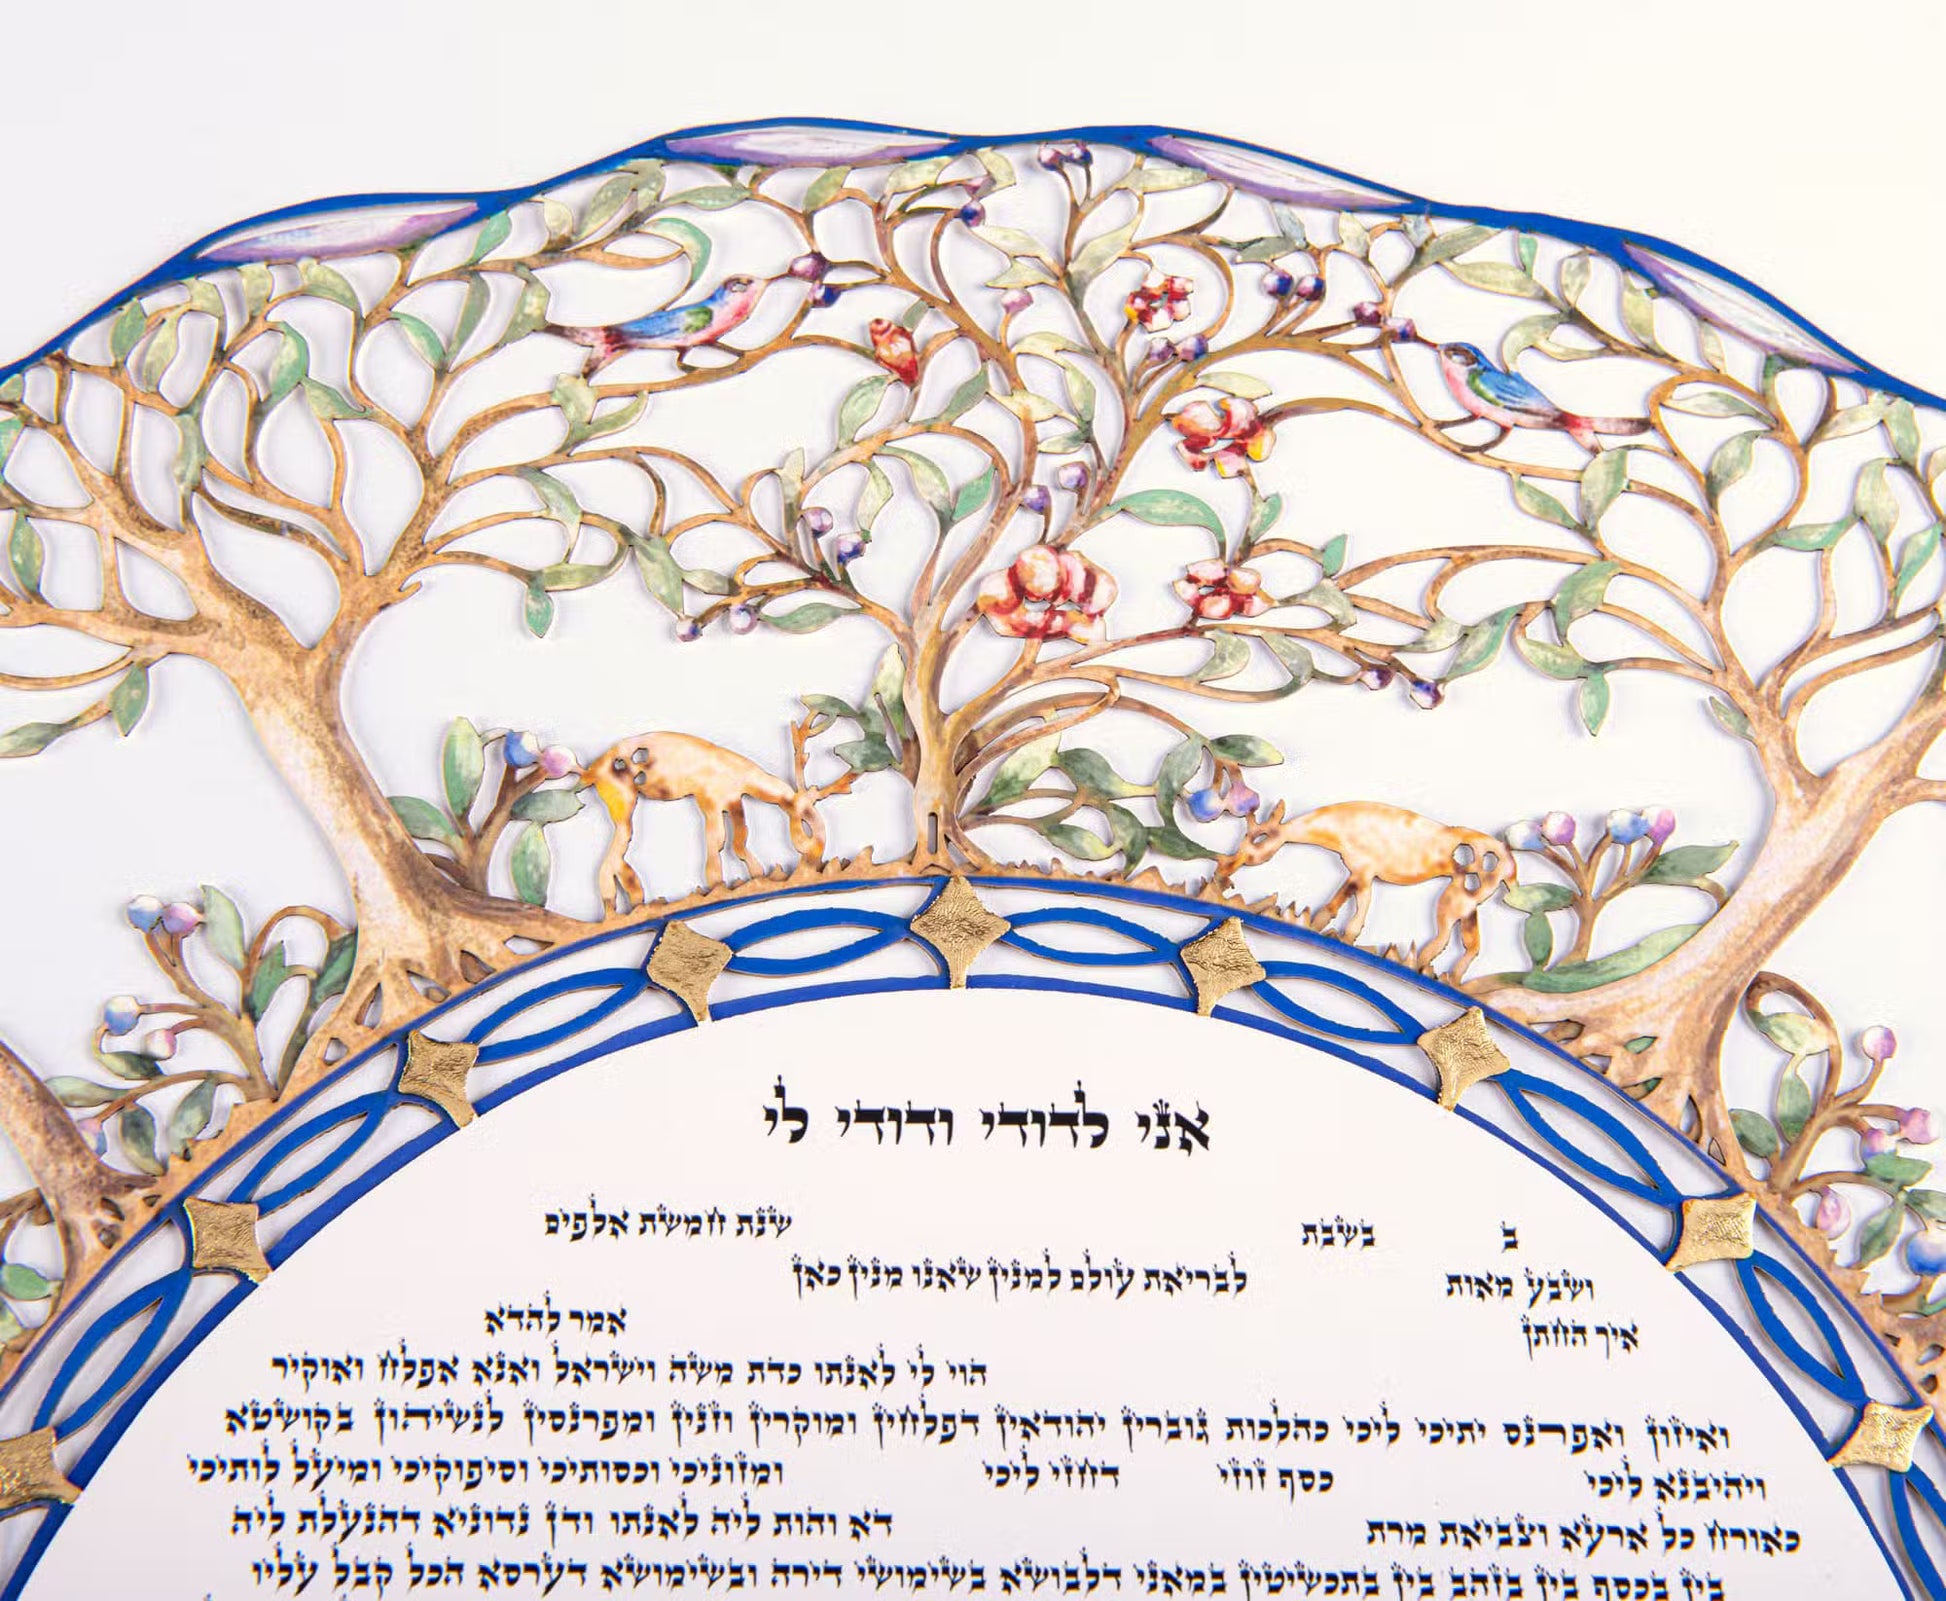 אני לדודי ודודי לי
ב בשבת שנת חמשת אלפים
ושבע מאות לבריאת עולם למנין שאנו מנין כאן
איך החתן אמר להדא
הוי לי לאנתו כדת משה וישראל ואנא אפלח ואוקיר
ואיזון ואפרנס יתיכי ליכי כהלכות גוברין יהודאין דפלחין ומוקרין וזנין ומפרנסין לנשיהון בקושטא
ויהיבנא ליכי כסף זוזי דחזי ליכי ומזוניכי וכסותיכי וסיפוקיכי ומיעל לותיכי
כאורח כל ארעא וצביאת מרת דא והות ליה לאנתו ודן נדוניא דהנעלת ליה
בין בכסף בין בזהב בין בתכשיטין במאני דלבושא בשימושי דירה ובשימושא דערסא הכל קבל עליו